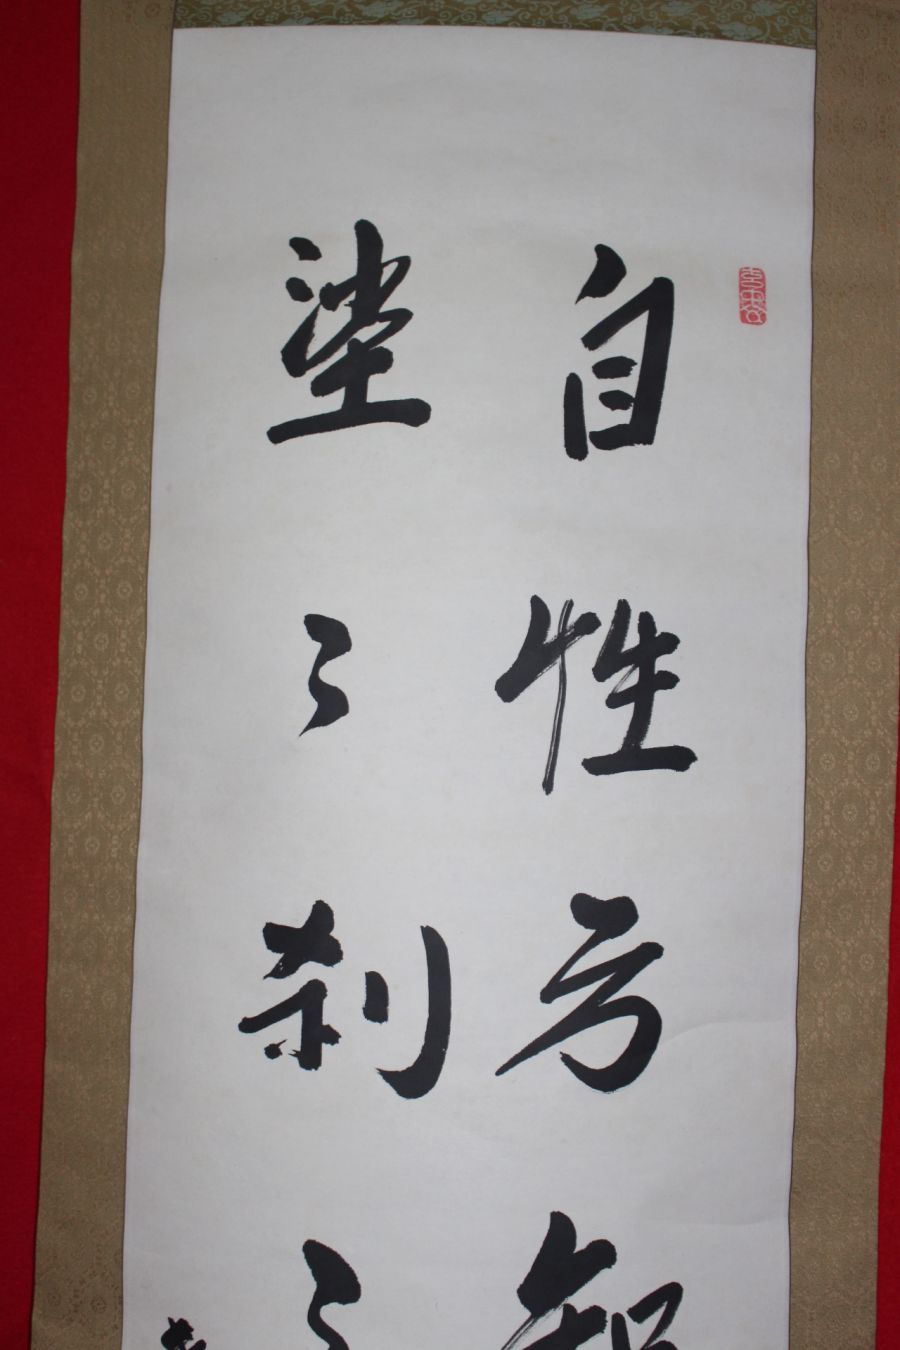 自性方知
塵々刹々